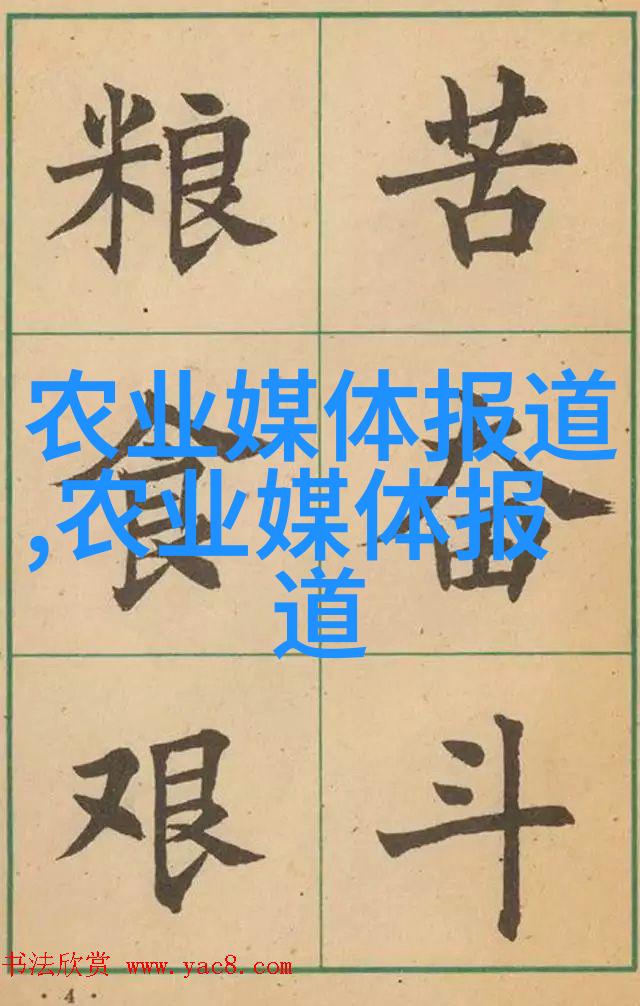 粮食艰
苦奋斗
农业媒体报道
,农业媒体报
道
书法欣赏 www.yac8.com
· 4 ·